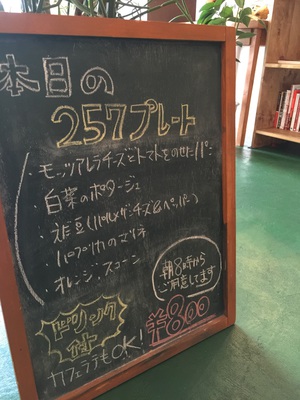 本日の
257プレート
・モッツアレラチーズとトマトをのせたパン
・白菜のポタージュ
・枝豆(パルメザンチーズ&ペッパー)
・ハーブ卵のマリネ
・オレンジスコーン
朝8時から
ご用意してます
ドリンク
付
カフェラテもOK!
¥800